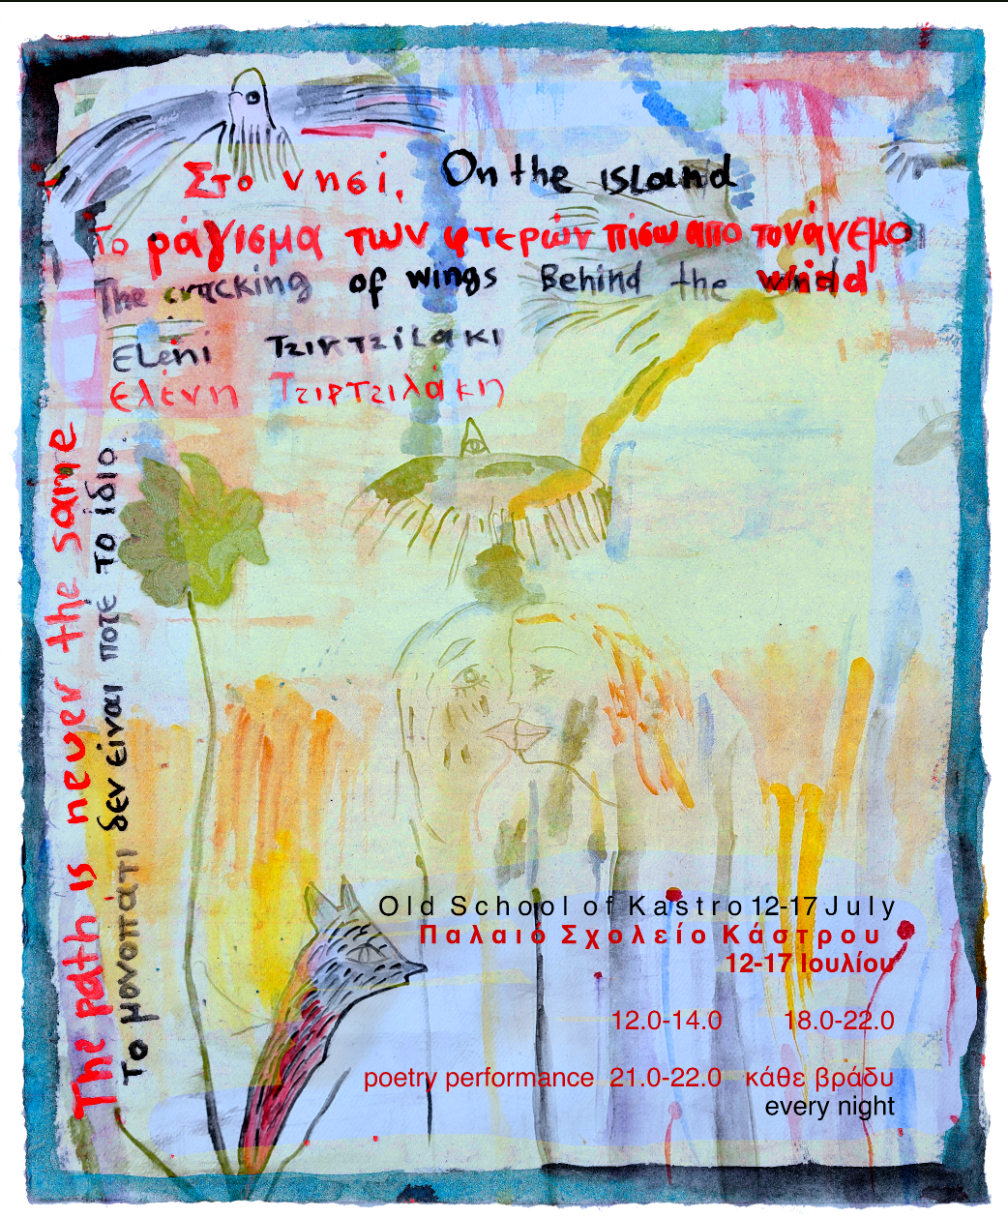 Στο νησί, On the island
Το ράγισμα των φτερών πίσω απο τον άνεμο
The cracking of wings Behind the wind
Eleni Τζιρτζiλακι
Ελένη Τζιρτζιλάκη
The path is never the same
Το μονοπάτι δεν είναι ποτε το ίδιο.
Old School of Kastro 12-17 July
Παλαιό Σχολείο Κάστρου
12-17 Ιουλίου
12.0-14.0 18.0-22.0
poetry performance 21.0-22.0 κάθε βράδυ
every night